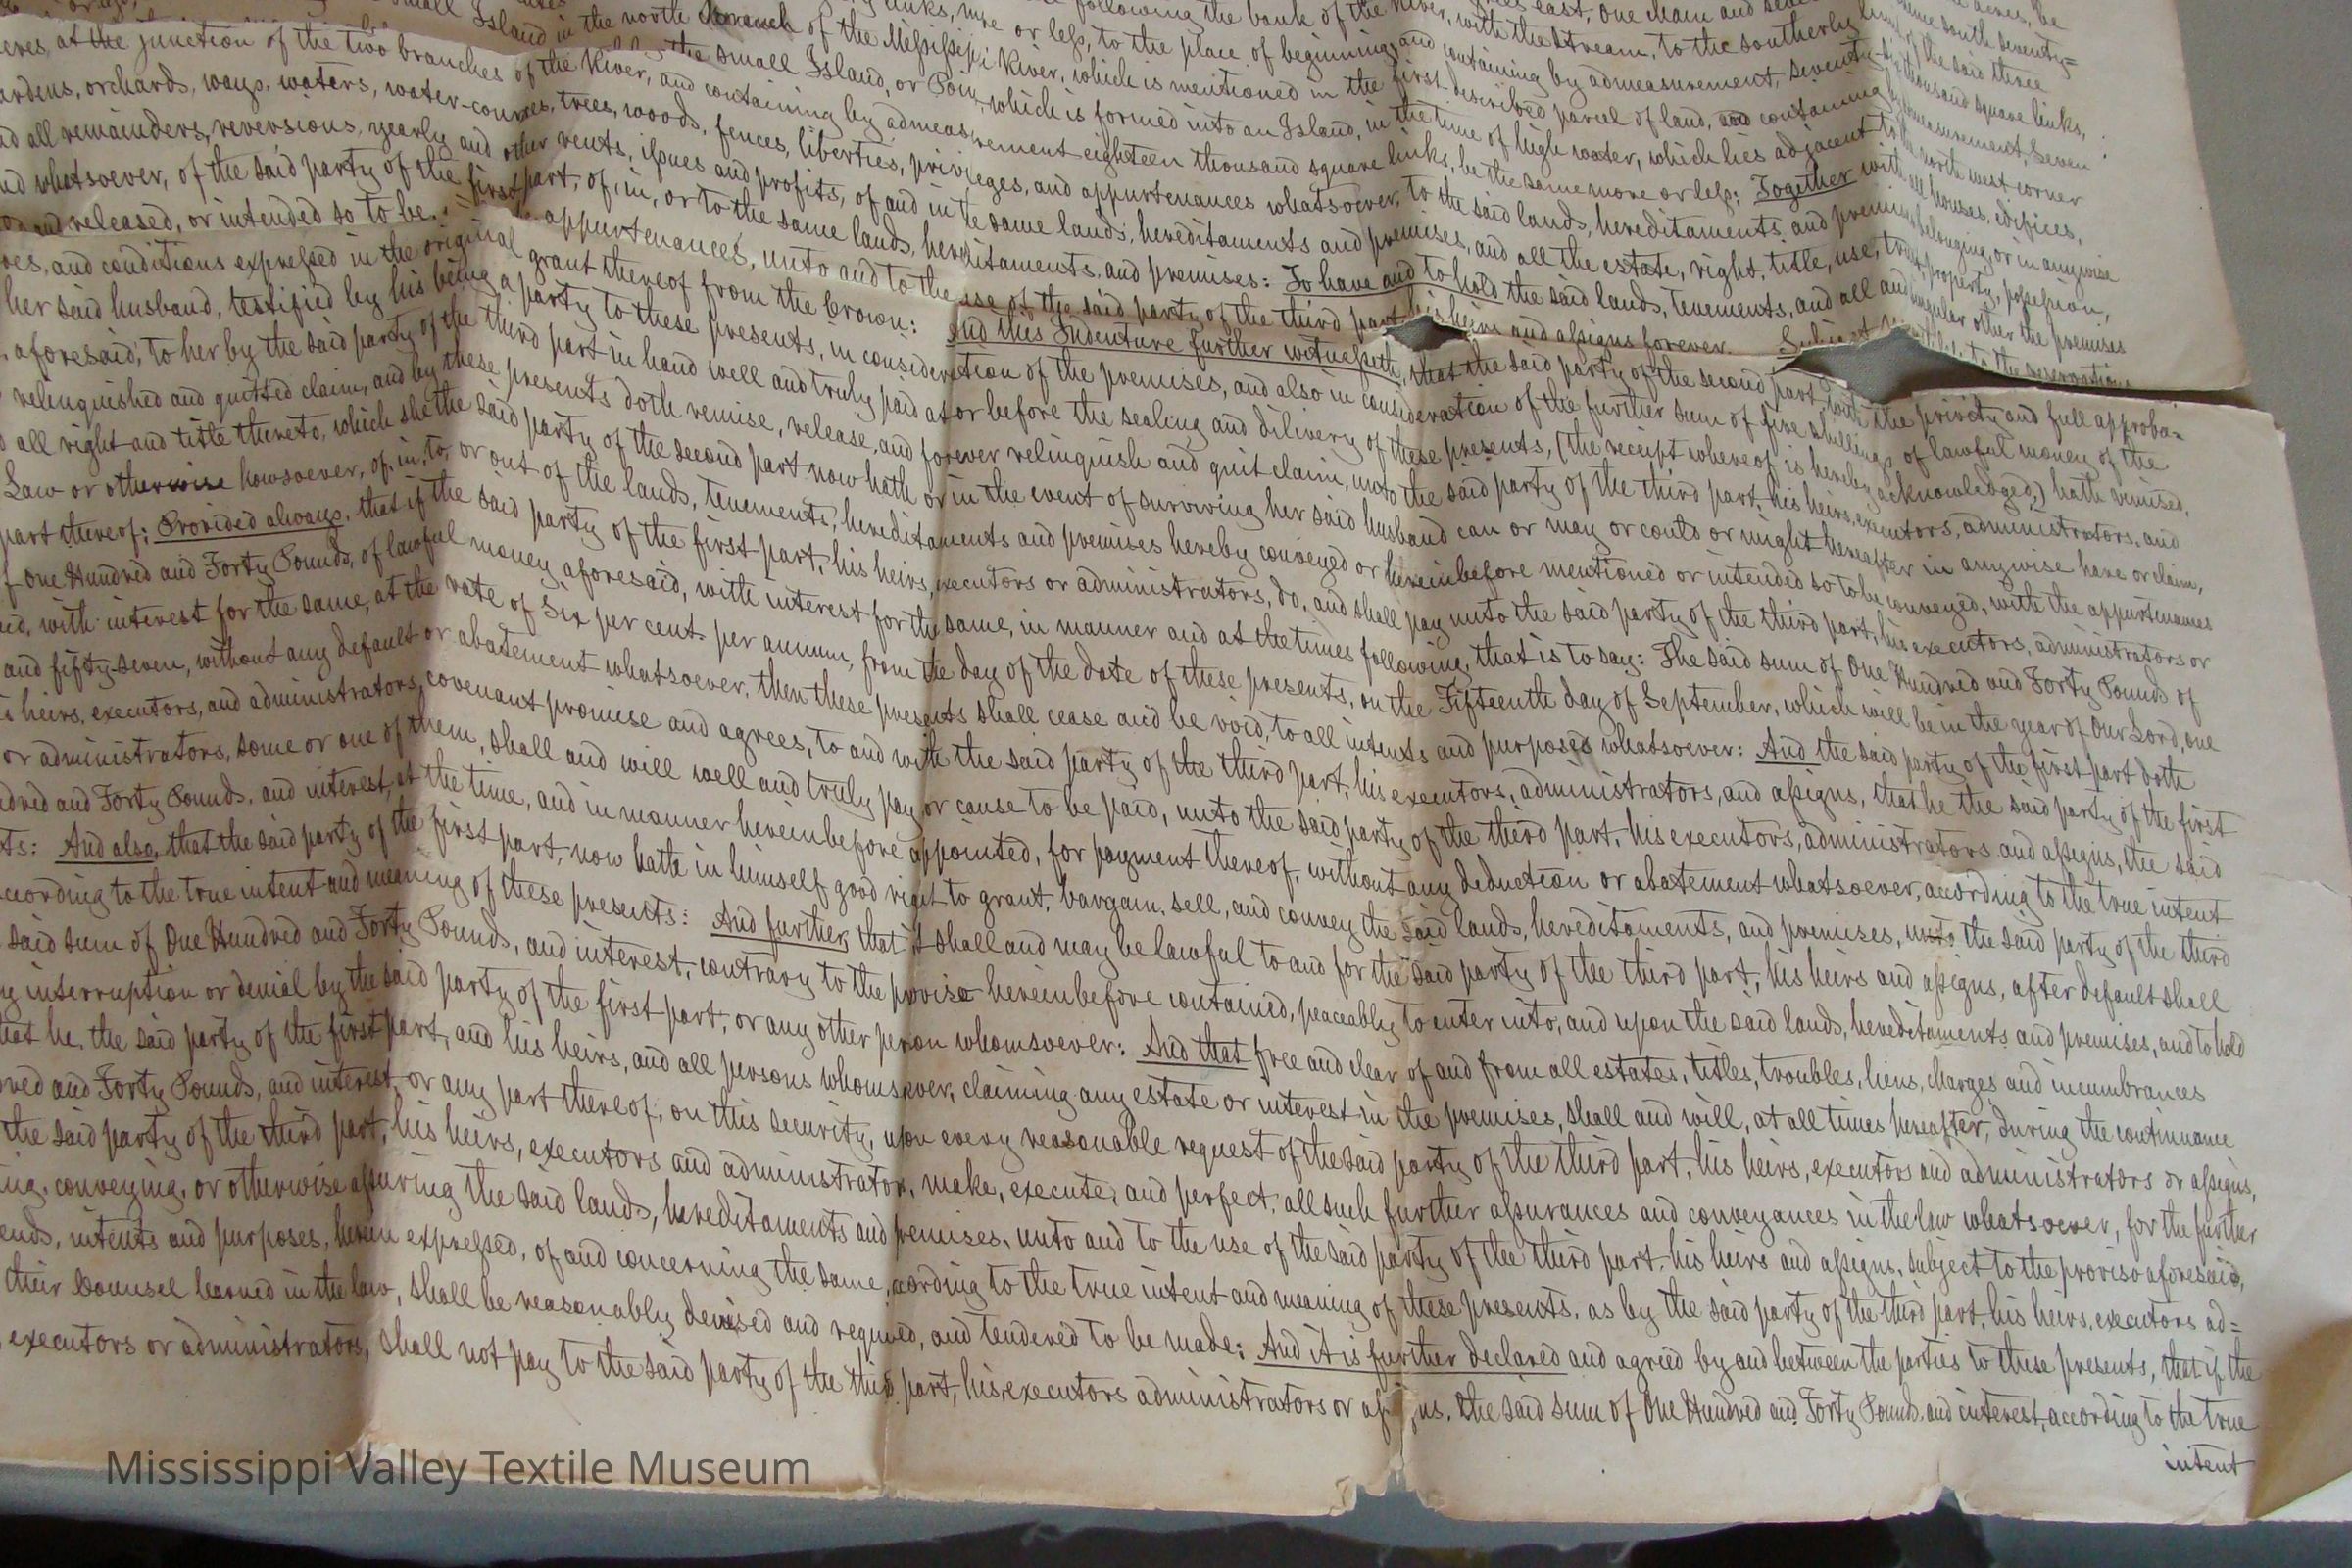 Island in the north branch of the Mississippi River, which is mentioned in the first described parcel of land, and containing by admeasurement, Seven
acres, at the junction of the two branches of the River, and containing by admeasurement eighteen thousand square links, be the same more or less; Together with all houses, edifices,
orchards, ways, waters, water-courses, trees, woods, fences, liberties, privileges, and appurtenances whatsoever, to the said lands, hereditaments and premises, belonging, or in anywise
all remainders, reversions, yearly and other rents, issues and profits, of and in the same lands, hereditaments and premises, and all the estate, right, title, use, trust, property, possession,
whatsoever, of the said party of the first part, of, in, or to the same lands, hereditaments and premises: To have and to hold the said lands, tenements, and all and singular other the premises
and released, or intended so to be. appurtenances, unto and to the use of the said party of the third part his heirs and assigns forever. Subject to the reservations
and conditions expressed in the original grant thereof from the Crown: And this Indenture further witnesseth, that the said party of the second part, with the privity and full approba=
her said husband, testified by his being a party to these presents, in consideration of the premises, and also in consideration of the further sum of five shillings of lawful money of the
aforesaid, to her by the said party of the third part in hand well and truly paid at or before the sealing and dilivery of these presents, (the receipt whereof is hereby acknowledged,) hath remised,
relinquished and quitted claim, and by these presents doth remise, release, and forever relinquish and quit claim, unto the said party of the third part, his heirs, executors, administrators, and
all right and title thereto, which she the said party of the second part now hath or in the event of surviving her said husband can or may or could or might hereafter in anywise have or claim,
Law or otherwise howsoever, of, in, to, or out of the lands, tenements, hereditaments and premises hereby conveyed or hereinbefore mentioned or intended so to be conveyed, with the appurtenances
part thereof; Provided always, that if the said party of the first part, his heirs, executors or administrators, do, and shall pay unto the said party of the third part, his executors, administrators or
of One Hundred and Forty Pounds, of lawful money aforesaid, with interest for the same, in manner and at the times following, that is to say: The said sum of One Hundred and Forty Pounds of
with interest for the same, at the rate of Six per cent. per annum, from the day of the date of these presents, on the Fifteenth day of September, which will be in the year of Our Lord, one
and fifty-seven, without any default or abatement whatsoever, then these presents shall cease and be void, to all intents and purposes whatsoever: And the said party of the first part doth
heirs, executors, and administrators, covenant promise and agrees, to and with the said party of the third part, his executors, administrators, and assigns, that he the said party of the first
or administrators, some or one of them, shall and will well and truly pay or cause to be paid, unto the said party of the third part, his executors, administrators and assigns, the said
and Forty Pounds, and interest, at the time, and in manner hereinbefore appointed, for payment thereof, without any deduction or abatement whatsoever, according to the true intent
And also, that the said party of the first part, now hath in himself good right to grant, bargain, sell, and convey the said lands, hereditaments, and premises, unto the said party of the third
according to the true intent and meaning of these presents: And further, that it shall and may be lawful to and for the said party of the third part, his heirs and assigns, after default shall
said sum of One Hundred and Forty Pounds, and interest, contrary to the proviso hereinbefore contained, peaceably to enter into, and upon the said lands, hereditaments and premises, and to hold
interruption or denial by the said party of the first part, or any other person whomsoever: And that free and clear of and from all estates, titles, troubles, liens, charges and incumbrances
that he, the said party of the first part, and his heirs, and all persons whomsoever, claiming any estate or interest in the premises, shall and will, at all times hereafter, during the continuance
and Forty Pounds, and interest, or any part thereof, on this security, upon every reasonable request of the said party of the third part, his heirs, executors and administrators or assigns,
the said party of the third part, his heirs, executors and administrators, make, execute, and perfect, all such further assurances and conveyances in the law whatsoever, for the further
conveying, or otherwise assuring the said lands, hereditaments and premises, unto and to the use of the said party of the third part, his heirs and assigns, subject to the proviso aforesaid,
ends, intents and purposes, herein expressed, of and concerning the same, according to the true intent and meaning of these presents, as by the said party of the third part, his heirs, executors ad=
their Counsel learned in the law, shall be reasonably devised and required, and tendered to be made; And it is further declared and agreed by and between the parties to these presents, that if the
executors or administrators, shall not pay to the said party of the third part, his executors administrators or assigns, the said sum of One Hundred and Forty Pounds, and interest, according to the true
intent
Mississippi Valley Textile Museum